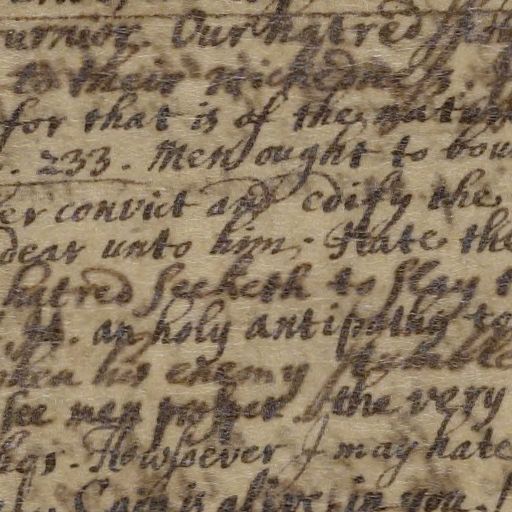 Our hatred
to their wickedness
for that is of the nature
. 233. Men ought to
er convict and edify the
dear unto him. Hate the
hatred seeketh to slay
an holy antipathy to
his enemy
see men prosper. the very
Howsoever I may hate
Cain is alive in you.